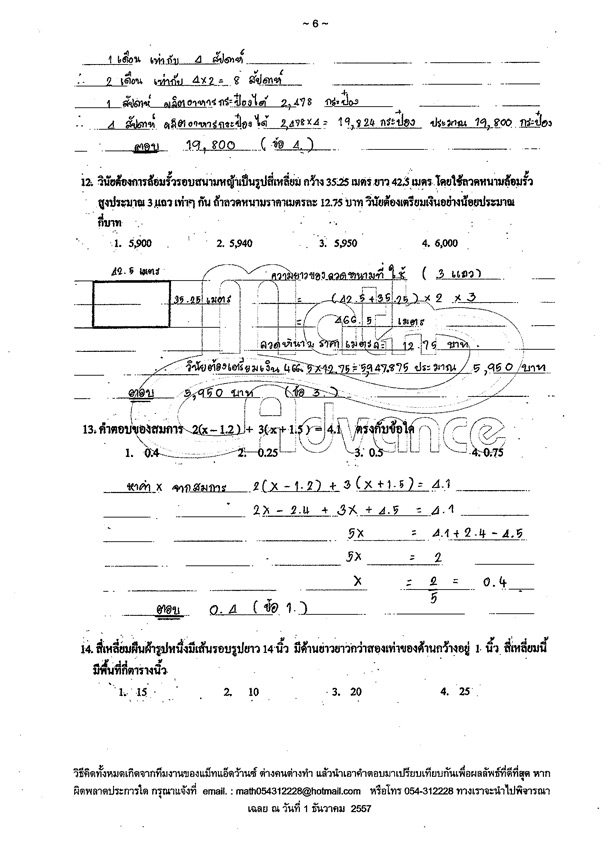 ~ 6 ~
1 เดือน เท่ากับ 4 สัปดาห์
∴ 2 เดือน เท่ากับ 4×2 = 8 สัปดาห์
1 สัปดาห์ ผลิตอาหารกระป๋องได้ 2,478 กระป๋อง
∴ 4 สัปดาห์ ผลิตอาหารกระป๋องได้ 2,478×4 = 19,824 กระป๋อง ประมาณ 19,800 กระป๋อง
ตอบ 19,800 (ข้อ 4.)
12. วินัยต้องการล้อมรั้วรอบสนามหญ้าเป็นรูปสี่เหลี่ยม กว้าง 35.25 เมตร ยาว 42.5 เมตร โดยใช้ลวดหนามล้อมรั้ว
สูงประมาณ 3 แถว เท่าๆ กัน ถ้าลวดหนามราคาเมตรละ 12.75 บาท วินัยต้องเตรียมเงินอย่างน้อยประมาณ
กี่บาท
1. 5,900 2. 5,940 3. 5,950 4. 6,000
42.5 เมตร
ความยาวของลวดหนามที่ใช้ (3 แถว)
35.25 เมตร = (42.5+35.25) × 2 × 3
= 466.5 เมตร
ลวดหนาม ราคาเมตรละ 12.75 บาท
วินัยต้องเตรียมเงิน 466.5×12.75 = 5947.875 ประมาณ 5,950 บาท
ตอบ 5,950 บาท (ข้อ 3.)
Math
Advance
13. คำตอบของสมการ 2(x – 1.2) + 3(x + 1.5) = 4.1 ตรงกับข้อใด
1. 0.4 2. 0.25 3. 0.5 4. 0.75
หาค่า x จากสมการ 2(x – 1.2) + 3(x + 1.5) = 4.1
2x – 2.4 + 3x + 4.5 = 4.1
5x = 4.1 + 2.4 – 4.5
5x = 2
x = 2/5 = 0.4
ตอบ 0.4 (ข้อ 1.)
14. สี่เหลี่ยมผืนผ้ารูปหนึ่งมีเส้นรอบรูปยาว 14 นิ้ว มีด้านยาวยาวกว่าสองเท่าของด้านกว้างอยู่ 1 นิ้ว สี่เหลี่ยมนี้
มีพื้นที่กี่ตารางนิ้ว
1. 15 2. 10 3. 20 4. 25
วิธีคิดทั้งหมดเกิดจากทีมงานของแม็ทแอ็ดว้านซ์ ต่างคนต่างทำ แล้วนำเอาคำตอบมาเปรียบเทียบกันเพื่อผลลัพธ์ที่ดีที่สุด หาก
ผิดพลาดประการใด กรุณาแจ้งที่ email. : math054312228@hotmail.com หรือโทร 054-312228 ทางเราจะนำไปพิจารณา
เฉลย ณ วันที่ 1 ธันวาคม 2557